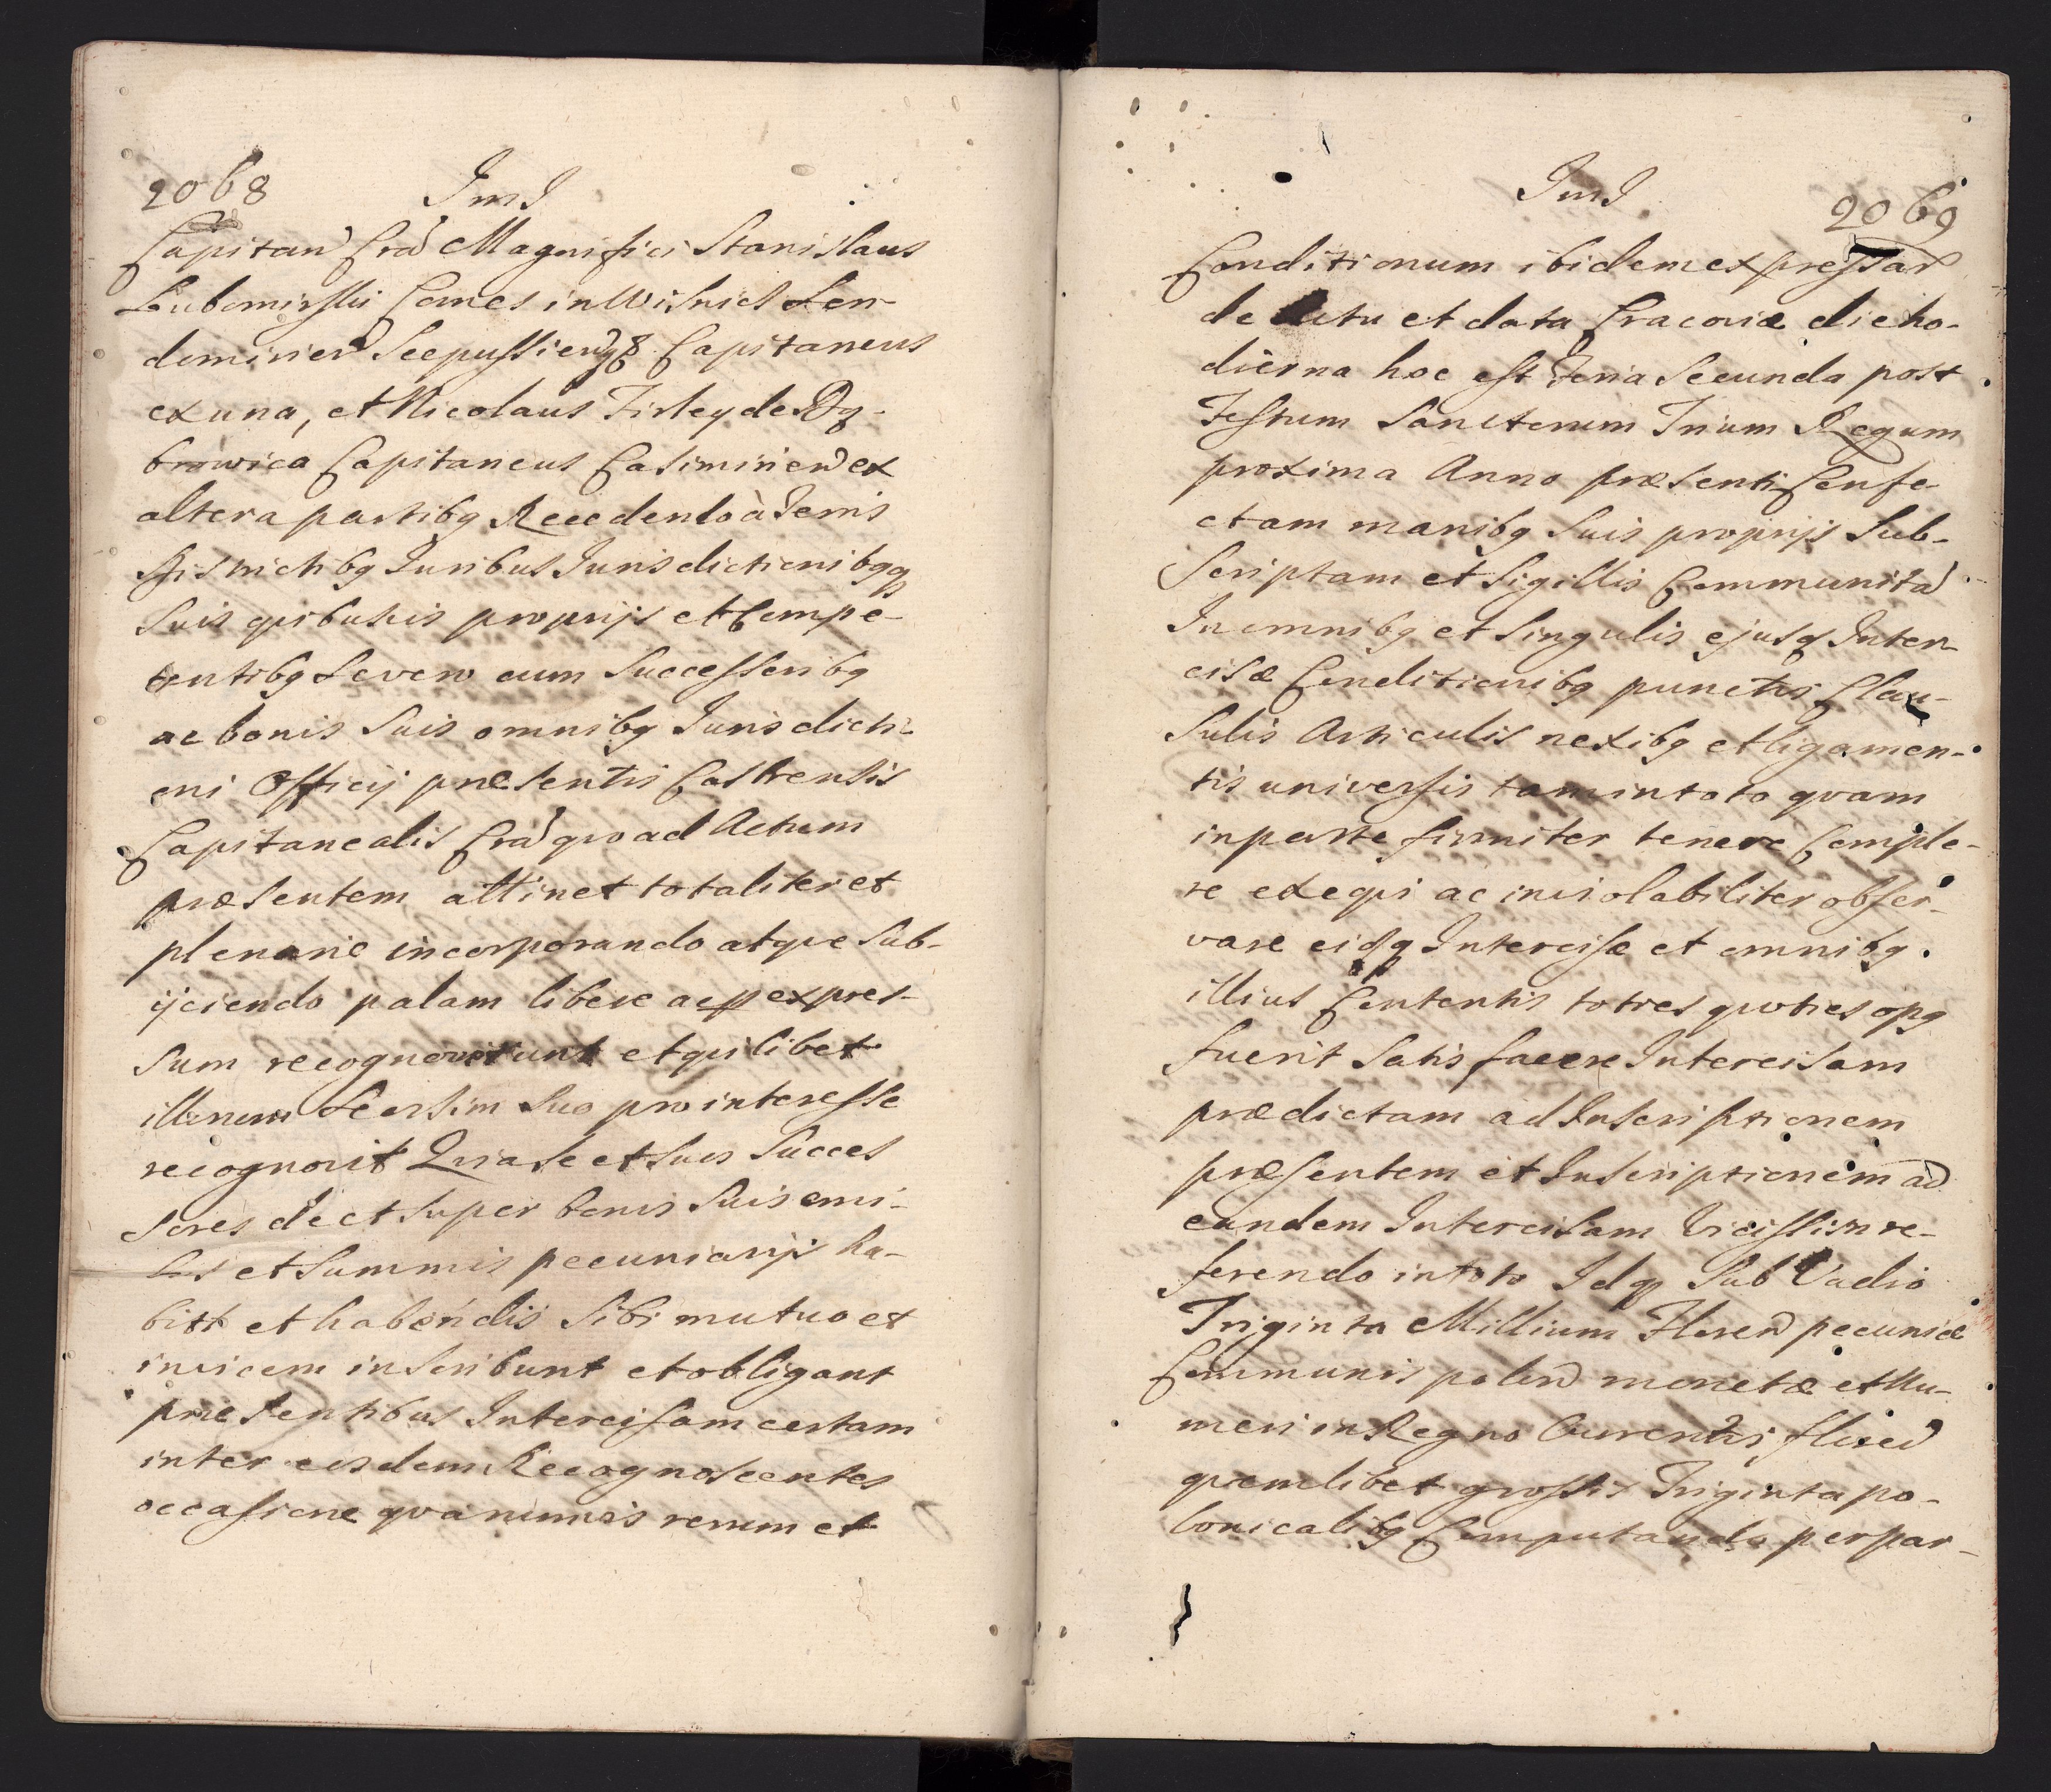 2068 JmJ
Capitan Cra Magnifici Stanislaus
Lubomirsski Comes in Wisnicz Sen-
domirien Scepussienqz Capitaneus
ex una, et Nicolaus Firley de Dą-
browica Capitaneus Casimirien ex
altera partibq Recedendo à Terris
Districtibq Juribus Jurisdictionibqq
Suis quibusvis proprijs et Compe-
tentibq Severo cum Successoribq
ac bonis Suis omnibq Jurisdicti-
oni Officij præsentis Castrensis
Capitanealis Cra quo ad Actum
præsentem attinet totaliter et
plenarie incorporando atque Sub-
ijciendo palam libere ac p expres-
Sum recognoverunt et quilibet
illorum Seorsim Suo pro interesse
recognovit Quia Se et Suos Succes
Sores de et Super bonis Suis omi-
bus et Summis pecuniarijs ha-
bitt et habendis Sibi mutuo et
invicem inscribunt et obligant
præsentibus Intercisam certam
inter eosdem Recognoscentes
occasione quarumvis rerum et
JmJ 2069
Conditionum ibidem expressar
de Actu et data Cracoviæ die ho-
dierna hoc est Feria Secunda post
Festum Sanctorum Trium Regum
proxima Anno præsenti Confe-
ctam manibq Suis proprijs Sub-
Scriptam et Sigillis Communita
In omnibq et Singulis ejusq Inter-
cisæ Conditionibq punctis Clau-
Sulis Articulis nexibq et ligamen-
tis universis tam in toto quam
in parte firmiter tenere Comple-
re exequi ac inviolabiliter obser-
vare eidq Intercisæ et omnibq
illius Contentis toties quoties opq
fuerit Satisfacere Intercisam
prædictam ad Inscriptionem
præsentem et Inscriptionem ad
eandem Intercisam Vicissim re-
ferendo in toto Idqz Sub Vadio
Triginta Millium Floren pecuniæ
Communis polon monetæ et Nu-
meri in Regno Currentis flored
quemlibet grossis Triginta po-
lonicalibq Computando per par-